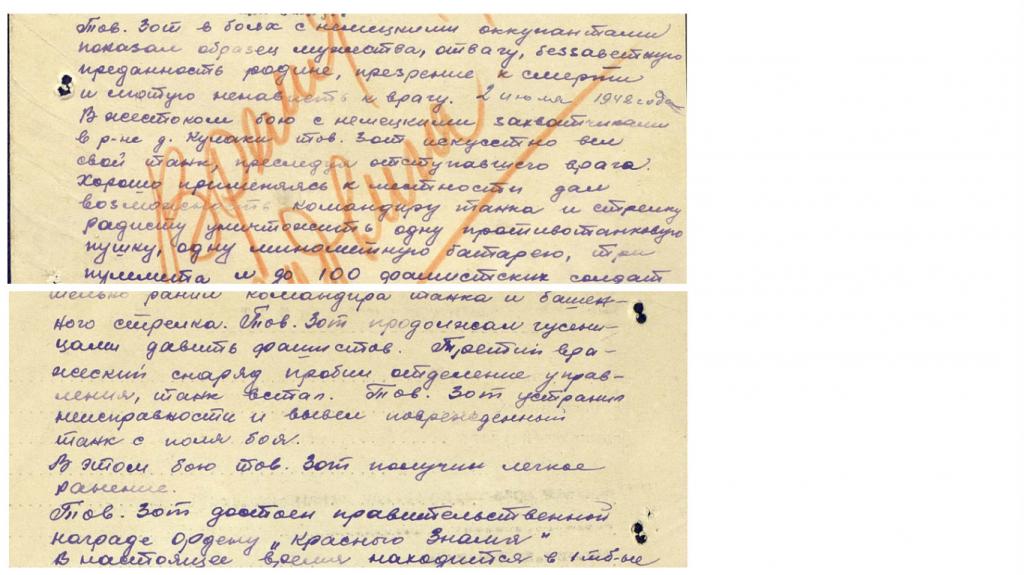 Тов. Зот в боях с немецкими оккупантами
показал образец мужества, отвагу, беззаветную
преданность родине, презрение к смерти
и лютую ненависть к врагу. 2 июля 1942 года
В жестоком бою с немецкими захватчиками
в р-не д. Кулаки тов. Зот искусстно вел
свой танк, преследуя отступавшего врага.
Хорошо применяясь к местности дал
возможность командиру танка и стрелку
радисту уничтожить одну противотанковую
пушку, одну минометную батарею, три
пулемета и до 100 фашистских солдат
тельно ранил командира танка и башен-
ного стрелка. Тов. Зот продолжал гусени-
цами давить фашистов. Третий вра-
жеский снаряд пробил отделение управ-
ления, танк встал. Тов. Зот устранил
неисправности и вывел поврежденный
танк с поля боя.
В этом бою тов. Зот получил легкое
ранение.
Тов. Зот достоен правительственной
награде ордену „Красного Знамя"
В настоящее время находится в 1 тб-не